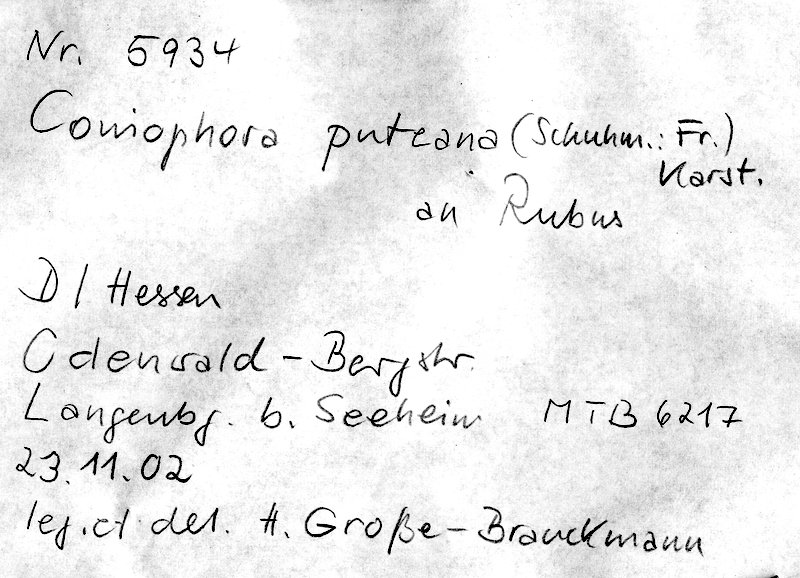 Nr. 5934
Coniophora puteana (Schuhm.: Fr.)
Karst.
an Rubus
D / Hessen
Odenwald - Bergstr.
Langenbg. b. Seeheim MTB 6217
23.11.02
leg. et det. H. Große-Brauckmann